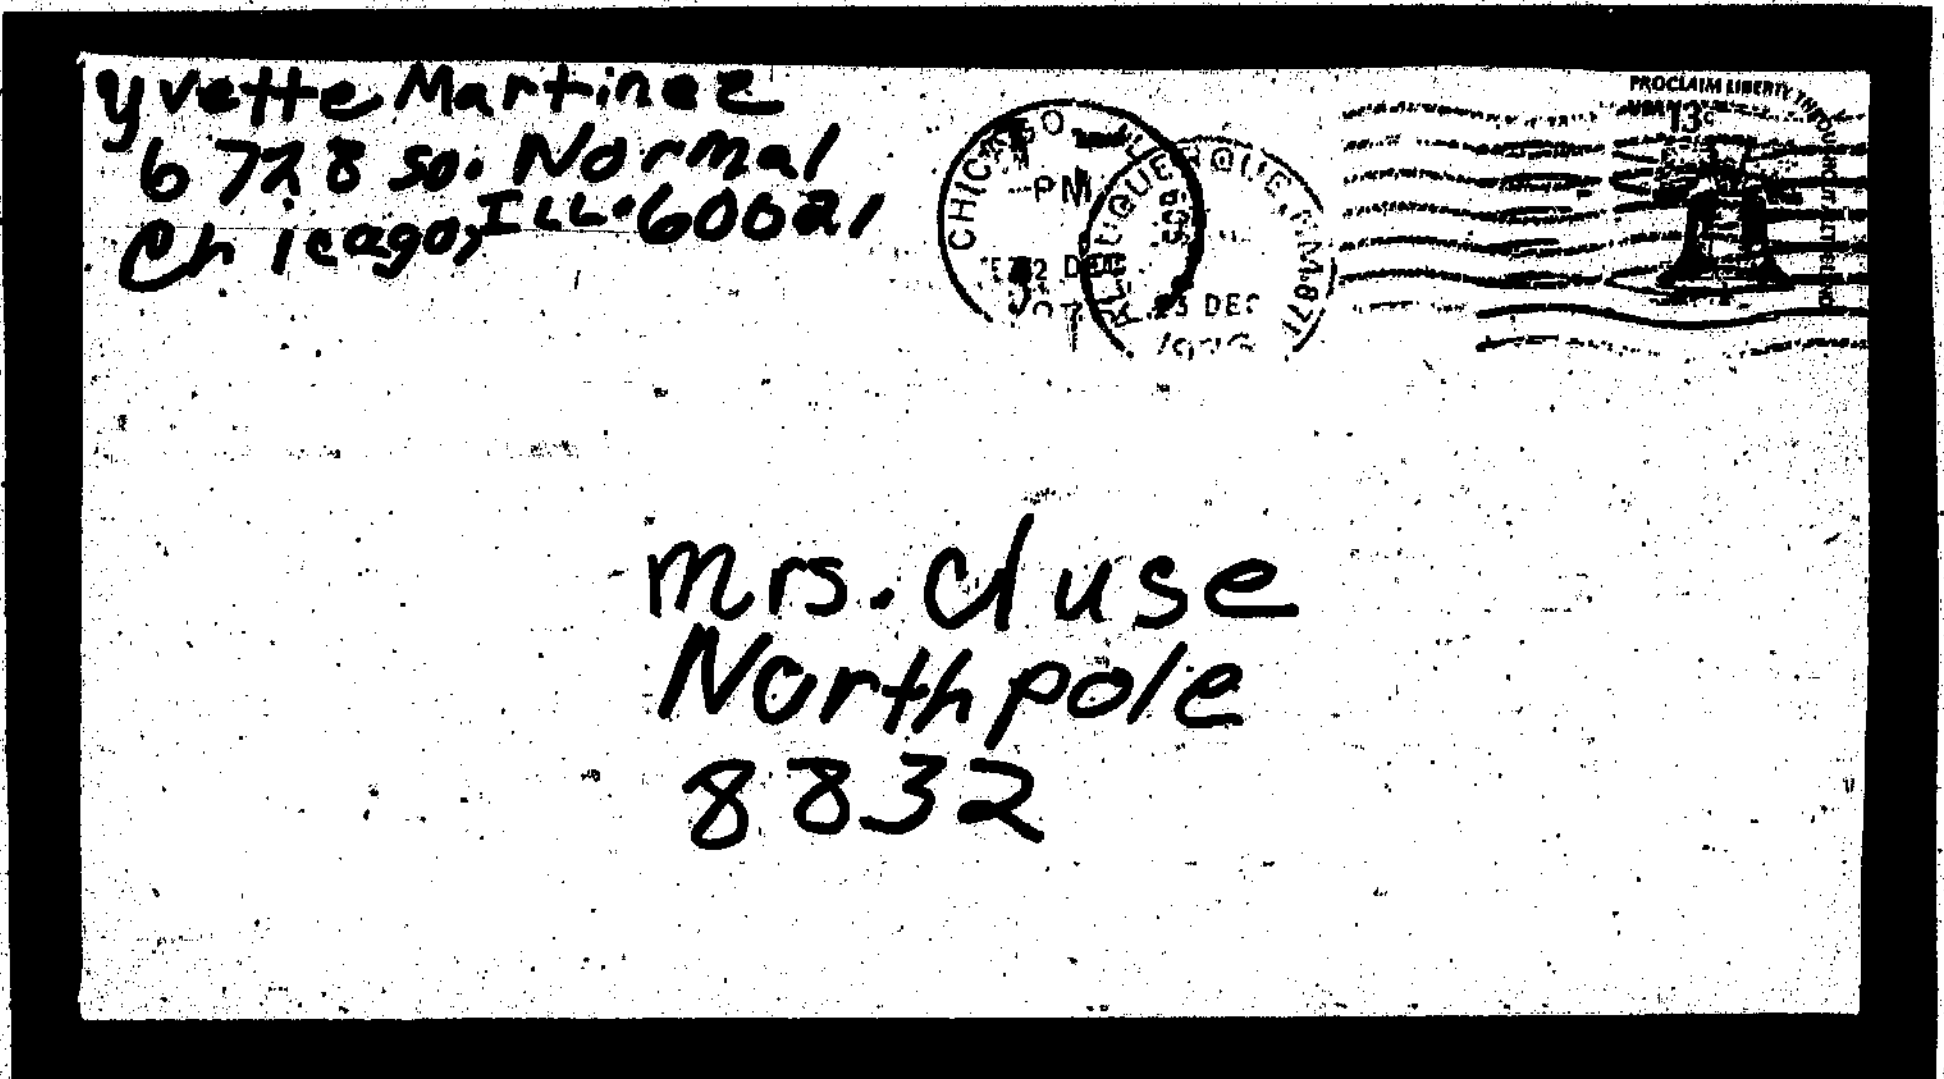 Yvette Martinez
6728 so. Normal
Chicago, ILL. 60621
CHICAGO
PM
ALBUQUERQUE, N.M. 871
23 DEC
1976
PROCLAIM LIBERTY THROUGHOUT
13c
Mrs. Cluse
North pole
8832